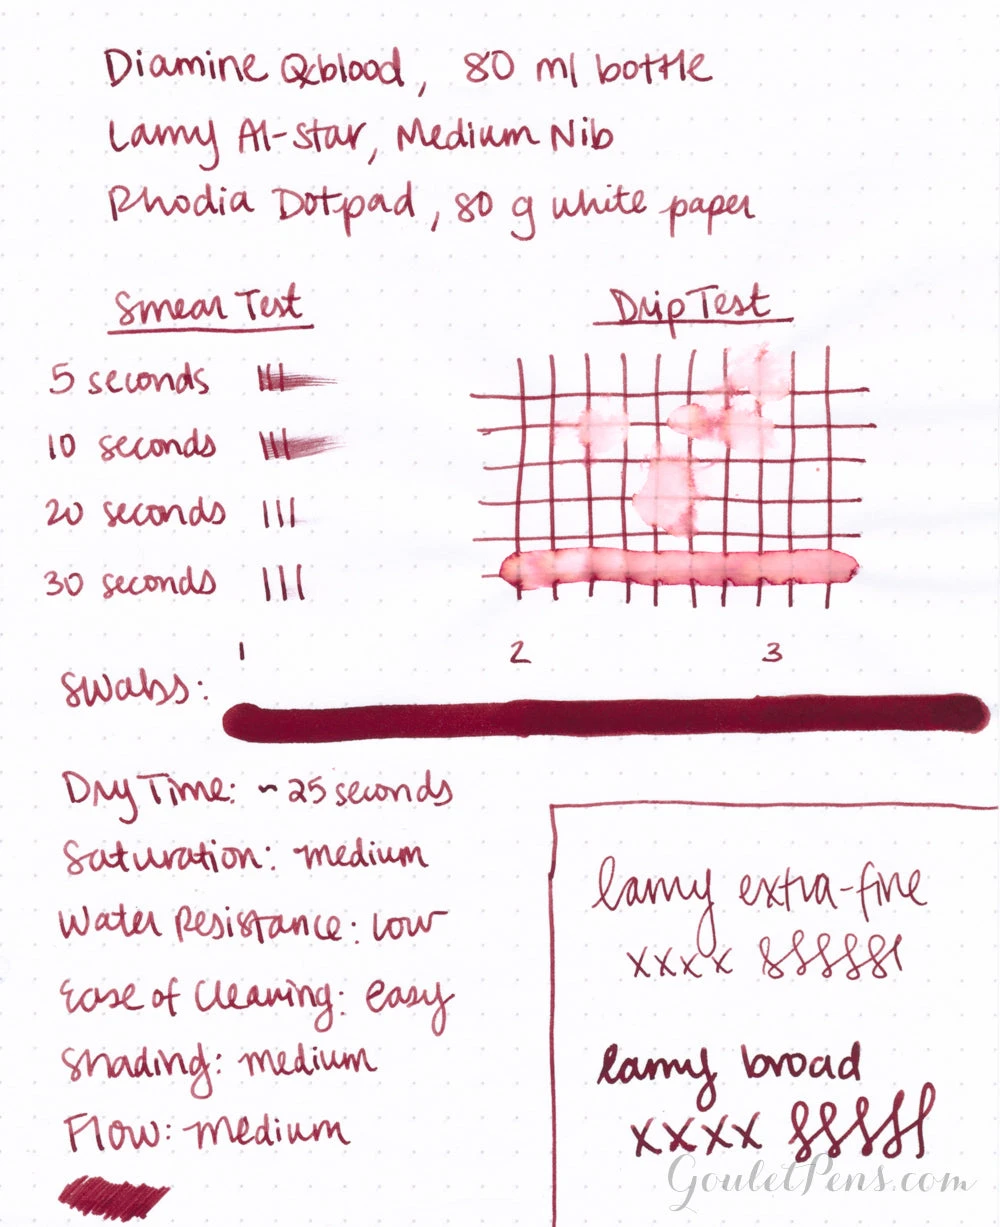 Diamine Oxblood, 80 ml bottle
Lamy Al-Star, Medium Nib
Rhodia Dotpad, 80 g white paper
Smear Test
5 seconds
10 seconds
20 seconds
30 seconds
Drip Test
1 2 3
Swabs:
Dry Time: ~25 seconds
Saturation: medium
Water Resistance: Low
Ease of Cleaning: easy
Shading: medium
Flow: medium
lamy extra-fine
xxxx
lamy broad
xxxx
GouletPens.com